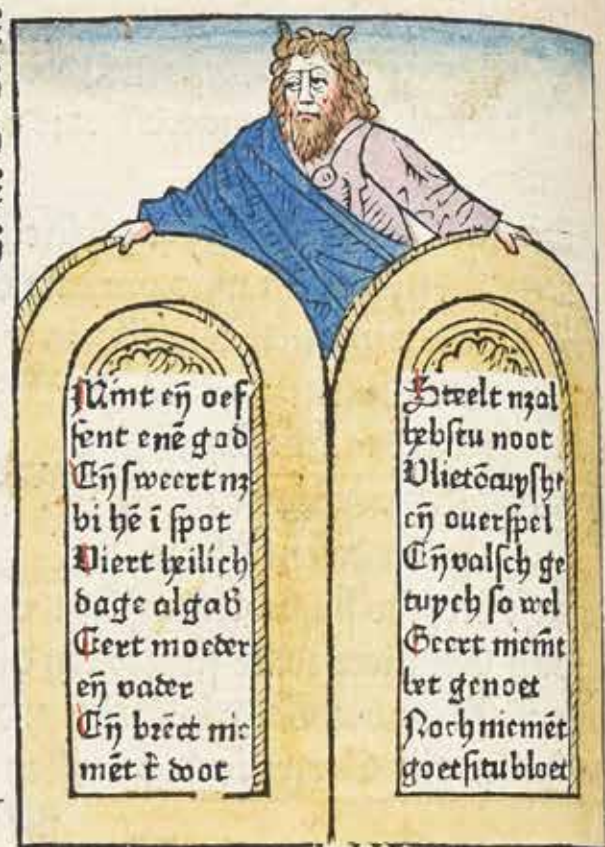 Mint eñ oef
fent enē god
Eñ sweert nꝫ
bi hē ī spot
Viert heilich
dage algad᷒
Eert moeder
eñ vader
Eñ brēct nie
mēt t̄ doot
Steelt nꝫ al
hebstu noot
Vliet ōcuyshꝭ
eñ ouerspel
Eñ valsch ge
tuych so wel
Geert niem̄t
bet genoet
Noch niemēt
goet situ bloet